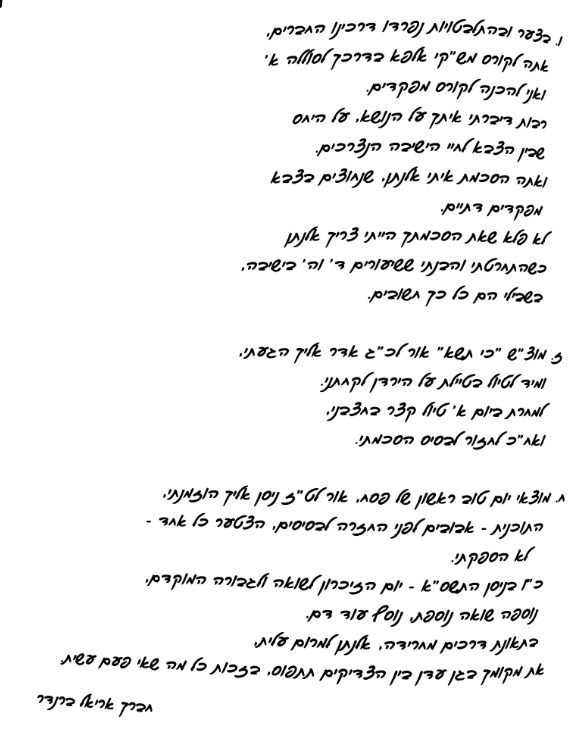 ו. בצער ובהתלבטויות נפרדו דרכינו החברים,
אתה לקורס מש"קי אלפא בדרכך לסוללה א'
ואני להכנה לקורס מפקדים.
רבות דיברתי איתך על הנושא, על היחס
שבין הצבא לחיי הישיבה הנצרכים.
ואתה הסכמת איתי אלנתן, שנחוצים בצבא
מפקדים דתיים.
לא פלא שאת הסכמתך הייתי צריך אלנתן
כשהתחרטתי והבנתי ששיעורים ד' וה' בישיבה,
בשבילי הם כל כך חשובים.
ז. מוצ"ש "כי תשא" אור לכ"ג אדר אליך הגעתי,
ומיד לטיול בטיילת על הירדן לקחתני.
למחרת ביום א' טיול קצר בחצבני,
ואח"כ לחזור לבסיס הסכמתי.
ח. מוצאי יום טוב ראשון של פסח, אור לט"ז ניסן אליך הוזמנתי,
התוכנית - אבובים לפני החזרה לבסיסים, הצטער כל אחד -
לא הספקתי.
כ"ו בניסן התשס"א - יום הזיכרון לשואה ולגבורה המוקדם,
נוספה שואה נוספת, נוסף עוד דם.
בתאונת דרכים מחרידה, אלנתן למרום עלית,
את מקומך בגן עדן בין הצדיקים תתפוס, בזכות כל מה שאי פעם עשית.
חברך אריאל ברנדר